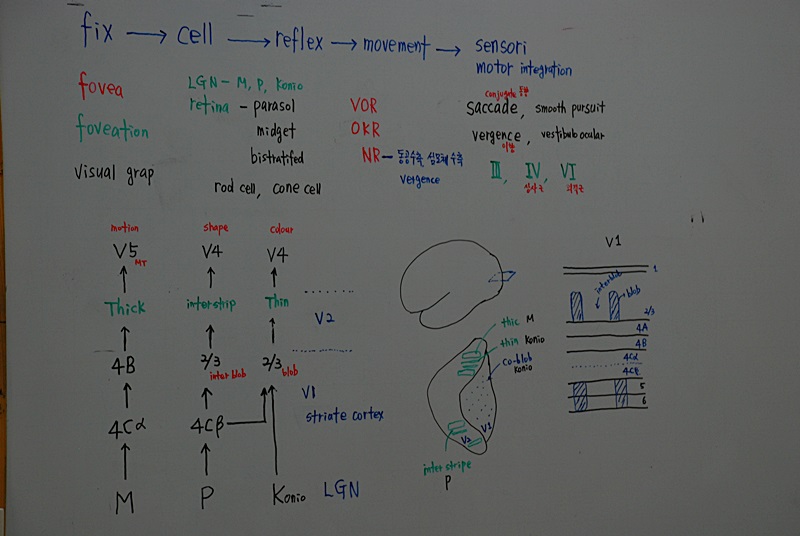 fix → cell → reflex → movement → sensori
motor integration
fovea
foveation
visual grap
LGN - M, P, Konio
retina - parasol
midget
bistratified
rod cell, cone cell
VOR
OKR
NR - 동공수축 섬모체 수축
vergence
conjugate 동향
saccade, smooth pursuit
vergence, vestibulo ocular
이향
III, IV, VI
상사근 외직근
motion shape colour
V5 V4 V4
MT
Thick interstrip Thin
V2
4B 2/3 2/3
interblob blob
V1
striate cortex
4Cα 4Cβ
M P Konio LGN
thic M
thin Konio
co-blob
Konio
V1
V2
inter stripe
P
V1
1
interblob
blob
2/3
4A
4B
4Cα
4Cβ
5
6